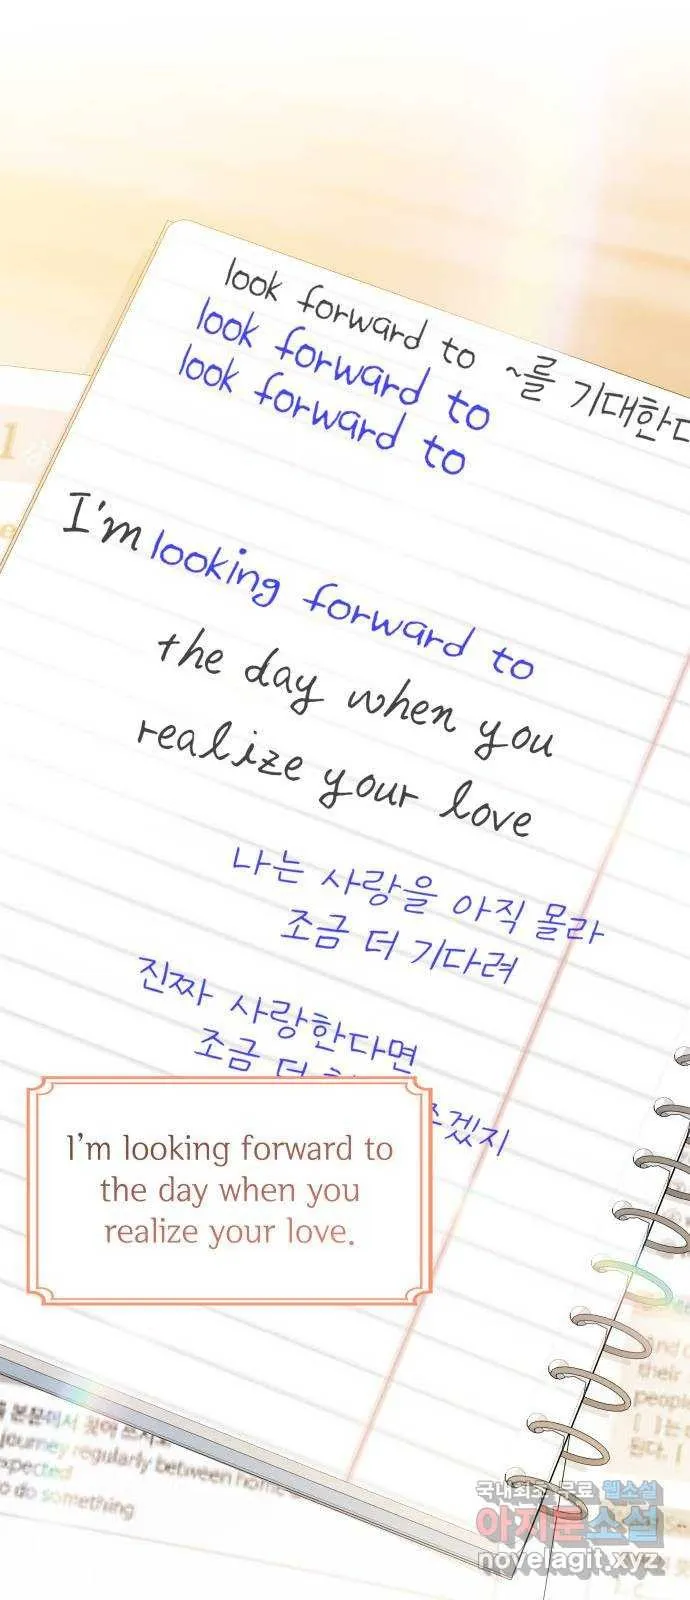 look forward to ~를 기대한다
look forward to
look forward to
I'm looking forward to
the day when you
realize your love
나는 사랑을 아직 몰라
조금 더 기다려
진짜 사랑한다면
조금 더
겠지
I'm looking forward to
the day when you
realize your love.
본문에서 찾아 쓰시오
journey regularly between home
expected
to do something
their
people
국내최초 무료 웹소설
아지툰소설
novelagit.xyz